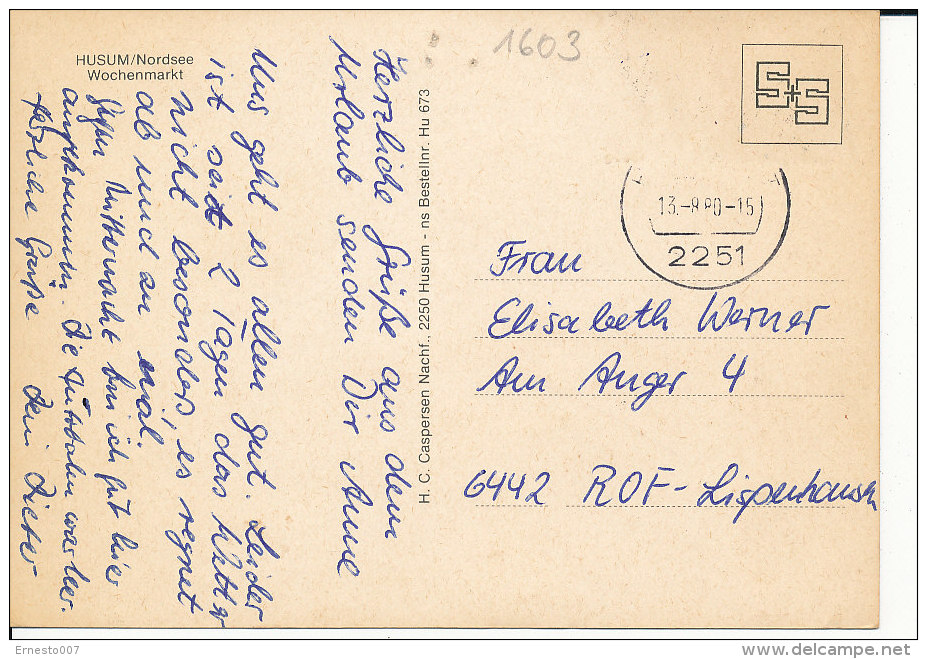 HUSUM/Nordsee
Wochenmarkt
1603
S+S
13.-8.80-15
2251
Herzliche Grüße aus dem
Urlaub senden Dir Anne
Uns geht es allen gut. Leider
ist seit 2 Tagen das Wetter
nicht besonders, es regnet
ab und an mal.
Gegen Mitternacht bin ich gut hier
angekommen. Die Autobahn war leer.
Herzliche Grüße Dein Dieter
H. C. Caspersen Nachf., 2250 Husum - ns Bestellnr. Hu 673
Frau
Elisabeth Werner
Am Anger 4
6442 ROF-Lispenhausen
Ernesto007
delcampe.net